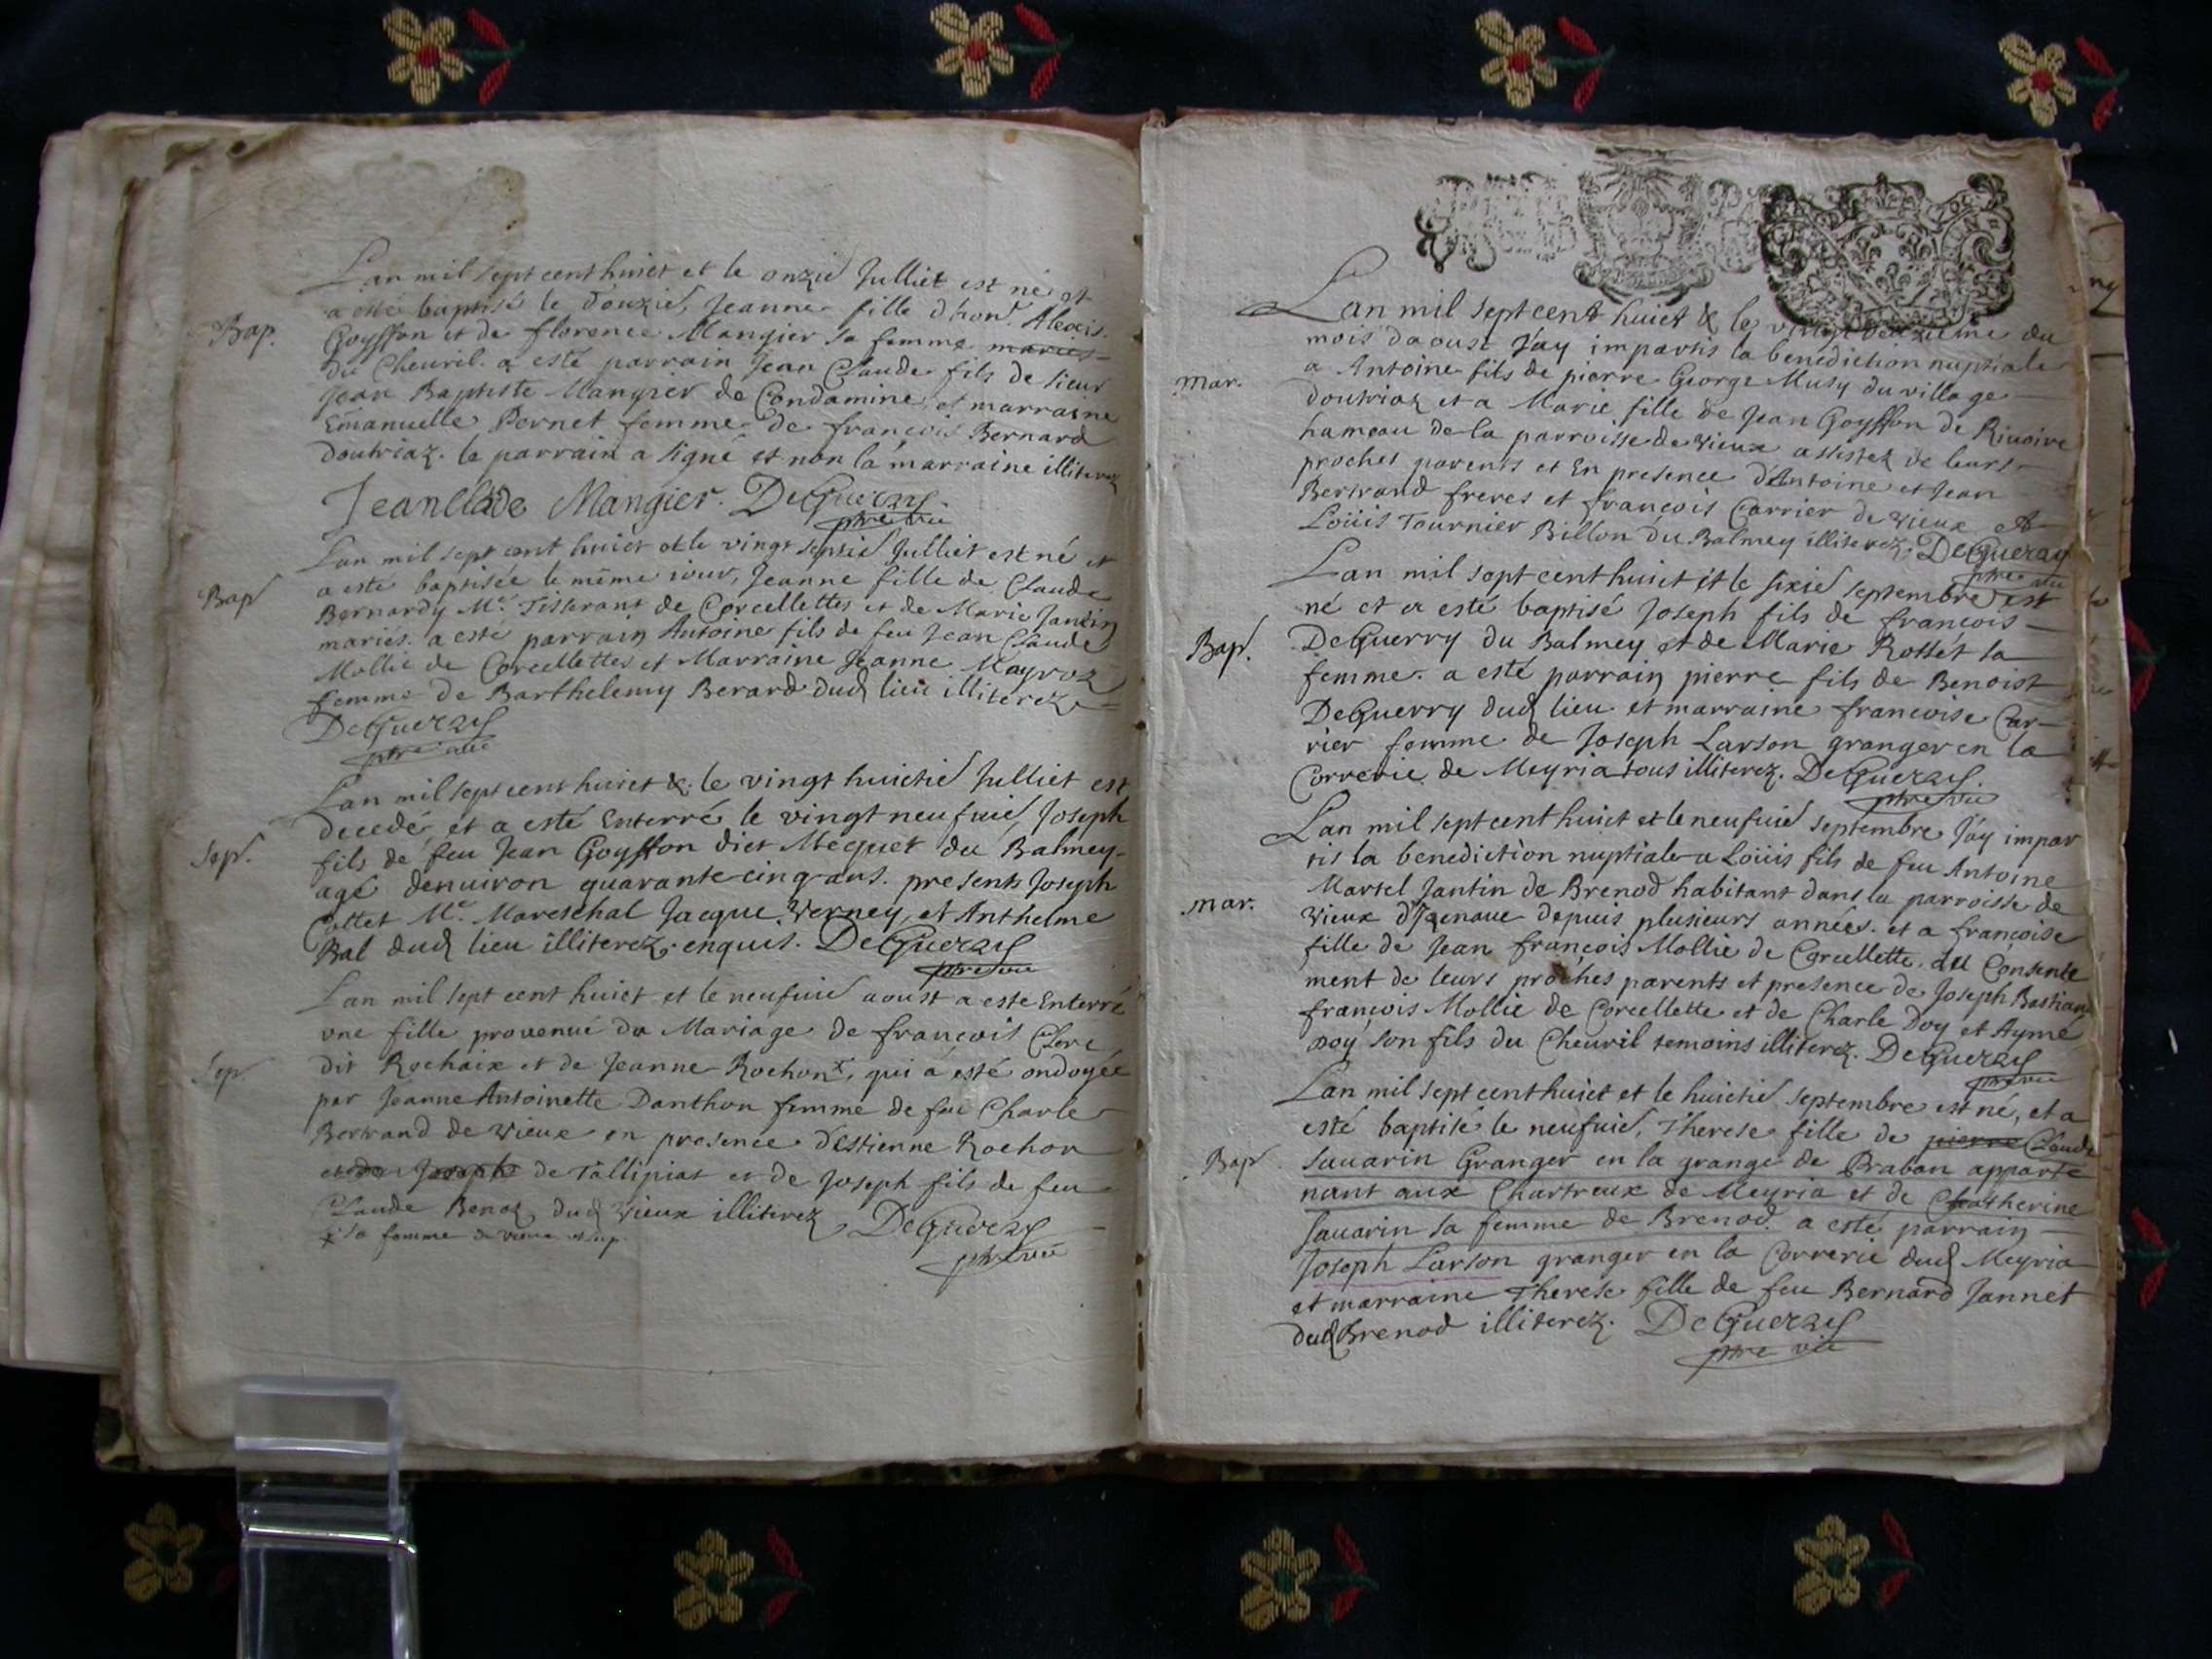 Lan mil sept cent huict et le onzie Julliet est né et
a esté baptisé le douzie, Jeanne fille d'hon. Alexis
Bap.
Goyffon et de florence Mangier sa femme mariés
du Cheuril. a esté parrain Jean Claude fils de sieur
Jean Baptiste Mangier de Condamine, et marraine
Emanuelle Pernet femme de françois Bernard
doutriaz. le parrain a signé et non la marraine illiterez
Jean Clade Mangier. DeGuerry
ptre vic
Lan mil sept cent huict et le vingt septie Julliet est né et
a esté baptisée le même iour, Jeanne fille de Claude
Bap
Bernardy Me. Tisserant de Corcellettes et de Marie Jantin
mariés. a esté parrain Antoine fils de feu Jean Claude
Mollie de Corcellettes et Marraine Jeanne Mayroz
femme de Barthelemy Berard dud lieu illiterez
DeGuerry
ptre vic
Lan mil sept cent huict &. le vingt huictie Julliet est
decedé et a esté Enterré le vingt neufuie Joseph
Sep.
fils de feu Jean Goyffon dict Mecquet du Balmey
agé denuiron quarante cinq ans. presents Joseph
Cottet Me. Mareschal Jacque Verney, et Anthelme
Bal dud lieu illiterez. enquis. DeGuerry
ptre vic
Lan mil sept cent huict et le neufuie aoust a este Enterré
vne fille prouenue du Mariage de françois Clerc
Sep.
dit Rochaix et de Jeanne Rochon x, qui a esté ondoyée
par Jeanne Antoinette Danthon femme de feu Charle
Bertrand de vieux en presence d'Estienne Rochon
et de Joseph de Tallipiat et de Joseph fils de feu
Claude Benoz dud vieux illiterez DeGuerry
x sa femme de vieux
ptre vic
Lan mil sept cent huict & le vingt deuxieme du
mois daoust J'ay impartis la benediction nuptiale
mar.
a Antoine fils de pierre George Musy du village
doutriaz et a Marie fille de Jean Goyffon de Riuoire
hameau de la parroisse de vieux assistez de leurs
proches parents et En presence d'Antoine et Jean
Bertrand freres et françois Carrier de vieux et
Loüis Tournier Billon du Balmey illiterez, DeGuerry
ptre vic
Lan mil sept cent huict et le sixie septembre est
né et a esté baptisé Joseph fils de françois
Bap.
DeGuerry du Balmey et de Marie Rossét sa
femme. a esté parrain pierre fils de Benoist
DeGuerry dud lieu et marraine francoise Car-
rier femme de Joseph Larson granger en la
Correrie de Meyria tous illiterez. DeGuerry
ptre vic
Lan mil sept cent huict et le neufuie septembre J'ay impar
tis la benediction nuptiale a Loüis fils de feu Antoine
Martel Jantin de Brenod habitant dans la parroisse de
mar.
vieux d'Izenaue depuis plusieurs années. et a françoise
fille de Jean françois Mollie de Corcellette. du Consente
ment de leurs proches parents et presence de Joseph Bastian
françois Mollie de Corcellette et de Charle Doy et Aymé
Doy son fils du Cheuril temoins illiterez. DeGuerry
ptre vic
Lan mil sept cent huict et le huictie septembre est né, et a
esté baptisé le neufuie, Therese fille de pierre Claude
Bap
Sauarin Granger en la grange de Braban apparte
nant aux Chartreux de Meyria et de Chatherine
Sauarin sa femme de Brenod. a esté parrain
Joseph Larson granger en la Correrie dud Meyria
et marraine Therese fille de feu Bernard Jannet
dud Brenod illiterez. DeGuerry
ptre vic